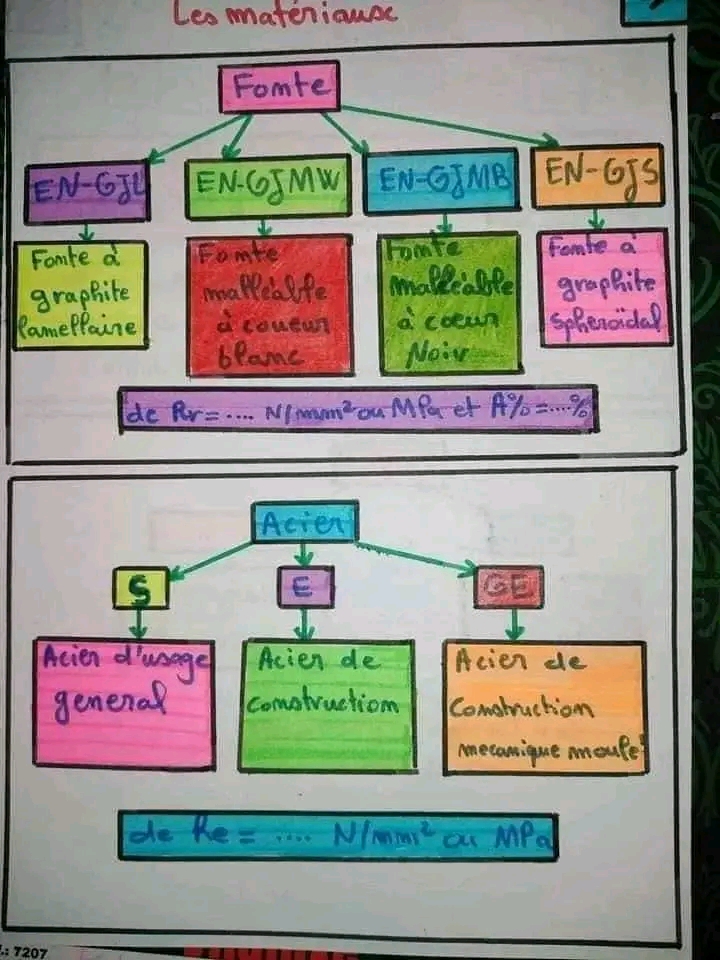 Les matériause
Fomte
EN-GJL
EN-GJMW
EN-GJMB
EN-GJS
Fomte à
graphite
lamellaire
Fomte
malléable
à coueur
blanc
Fomte
malléable
à coeur
Noir
Fomte à
graphite
spheroïdal
de Rr= .... N/mm² ou MPa et A%=....%
Acier
S
E
GE
Acier d'usage
general
Acier de
construction
Acier de
Construction
mecanique moulé
de Re = .... N/mm² ou MPa
.: 7207